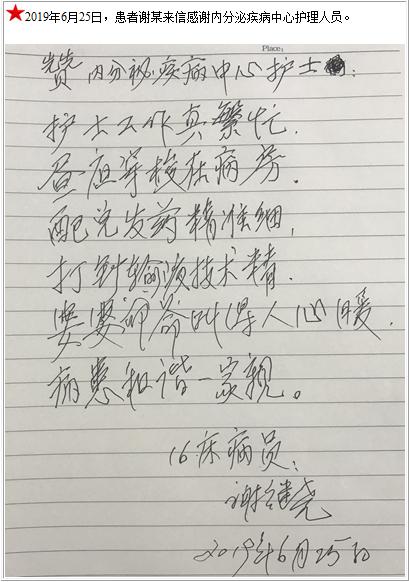 ★2019年6月25日，患者谢某来信感谢内分泌疾病中心护理人员。
Place:
赞内分泌疾病中心护士:
护士工作真繁忙.
在病旁.
配兑发药精准细,
打针输液技术精.
叫得人心暖.
病患和谐一家亲。
16床病员:
谢
2019年6月25日